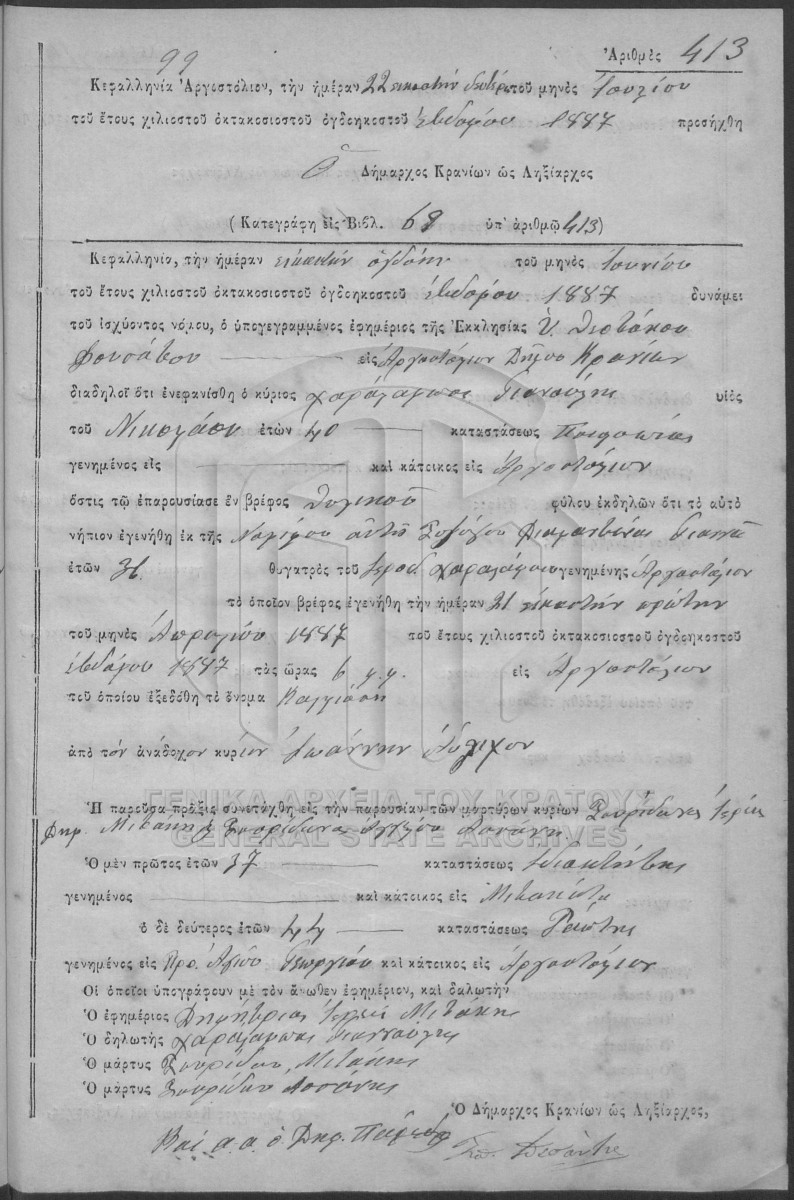 99
Ἀριθμὸς 413
Κεφαλληνία Ἀργοστόλιον, τὴν ἡμέραν 22 εικοστήν δευτέρ. τοῦ μηνὸς Ιουλίου
τοῦ ἔτους χιλιοστοῦ ὀκτακοσιοστοῦ ὀγδοηκοστοῦ ἑβδόμου 1887 προσήχθη
Ὁ Δήμαρχος Κρανίων ὡς Ληξίαρχος
(Κατεγράφη εἰς Βιβλ. 69 ὑπ' ἀριθμῷ 413)
Κεφαλληνία, τὴν ἡμέραν εικοστήν ὀγδόην τοῦ μηνὸς Ιουνίου
τοῦ ἔτους χιλιοστοῦ ὀκτακοσιοστοῦ ὀγδοηκοστοῦ ἑβδόμου 1887 δυνάμει
τοῦ ἰσχύοντος νόμου, ὁ ὑπογεγραμμένος ἐφημέριος τῆς Ἐκκλησίας
εἰς Αργοστόλιον Δήμου Κρανίων
διαδηλοῖ ὅτι ἐνεφανίσθη ὁ κύριος Χαράλαμπος Γιανούλης υἱὸς
τοῦ Νικολάου ἐτῶν 40 καταστάσεως
γενημένος εἰς καὶ κάτοικος εἰς Αργοστόλιον
ὅστις τῷ ἐπαρουσίασε ἓν βρέφος θυλικοῦ φύλου ἐκδηλῶν ὅτι τὸ αὐτὸ
νήπιον ἐγενήθη ἐκ τῆς Νομίμου αὐτοῦ Συζύγου Διαμαντίνας
ἐτῶν 36 θυγατρὸς τοῦ Χαραλάμπου γενημένης Αργοστόλιον
τὸ ὁποῖον βρέφος ἐγενήθη τὴν ἡμέραν 21 εικοστήν πρώτην
τοῦ μηνὸς Απριλίου 1887 τοῦ ἔτους χιλιοστοῦ ὀκτακοσιοστοῦ ὀγδοηκοστοῦ
ἑβδόμου 1887 τὰς ὥρας 6 εἰς Αργοστόλιον
τοῦ ὁποίου ἐξεδόθη τὸ ὄνομα Καλλιόπη
ἀπὸ τὸν ἀνάδοχον κύριον Ἰωάννην
ΓΕΝΙΚΑ ΑΡΧΕΙΑ ΤΟΥ ΚΡΑΤΟΥΣ
Ἡ παροῦσα πρᾶξις συνετάχθη εἰς τὴν παρουσίαν τῶν μαρτύρων κυρίων Σπυρίδωνος Ιερέως
Δημ. Μιτάκη & Σπυρίδωνος Αγγέλου
GENERAL STATE ARCHIVES
Ὁ μὲν πρῶτος ἐτῶν 37 καταστάσεως Κτηματίης
γενημένος καὶ κάτοικος εἰς Μιτακάτα
ὁ δὲ δεύτερος ἐτῶν 44 καταστάσεως Ράπτης
γενημένος εἰς Προ. Αγίου Γεωργίου καὶ κάτοικος εἰς Αργοστόλιον
Οἱ ὁποῖοι ὑπογράφουν μὲ τὸν ἄνωθεν ἐφημέριον, καὶ δηλωτὴν
Ὁ ἐφημέριος Δημήτριος Ιερεύς Μιτάκης
Ὁ δηλωτὴς Χαράλαμπος Γιαννούλης
Ὁ μάρτυς Σπυρίδων Μιτάκης
Ὁ μάρτυς Σπυρίδων
Ὁ Δήμαρχος Κρανίων ὡς Ληξίαρχος,